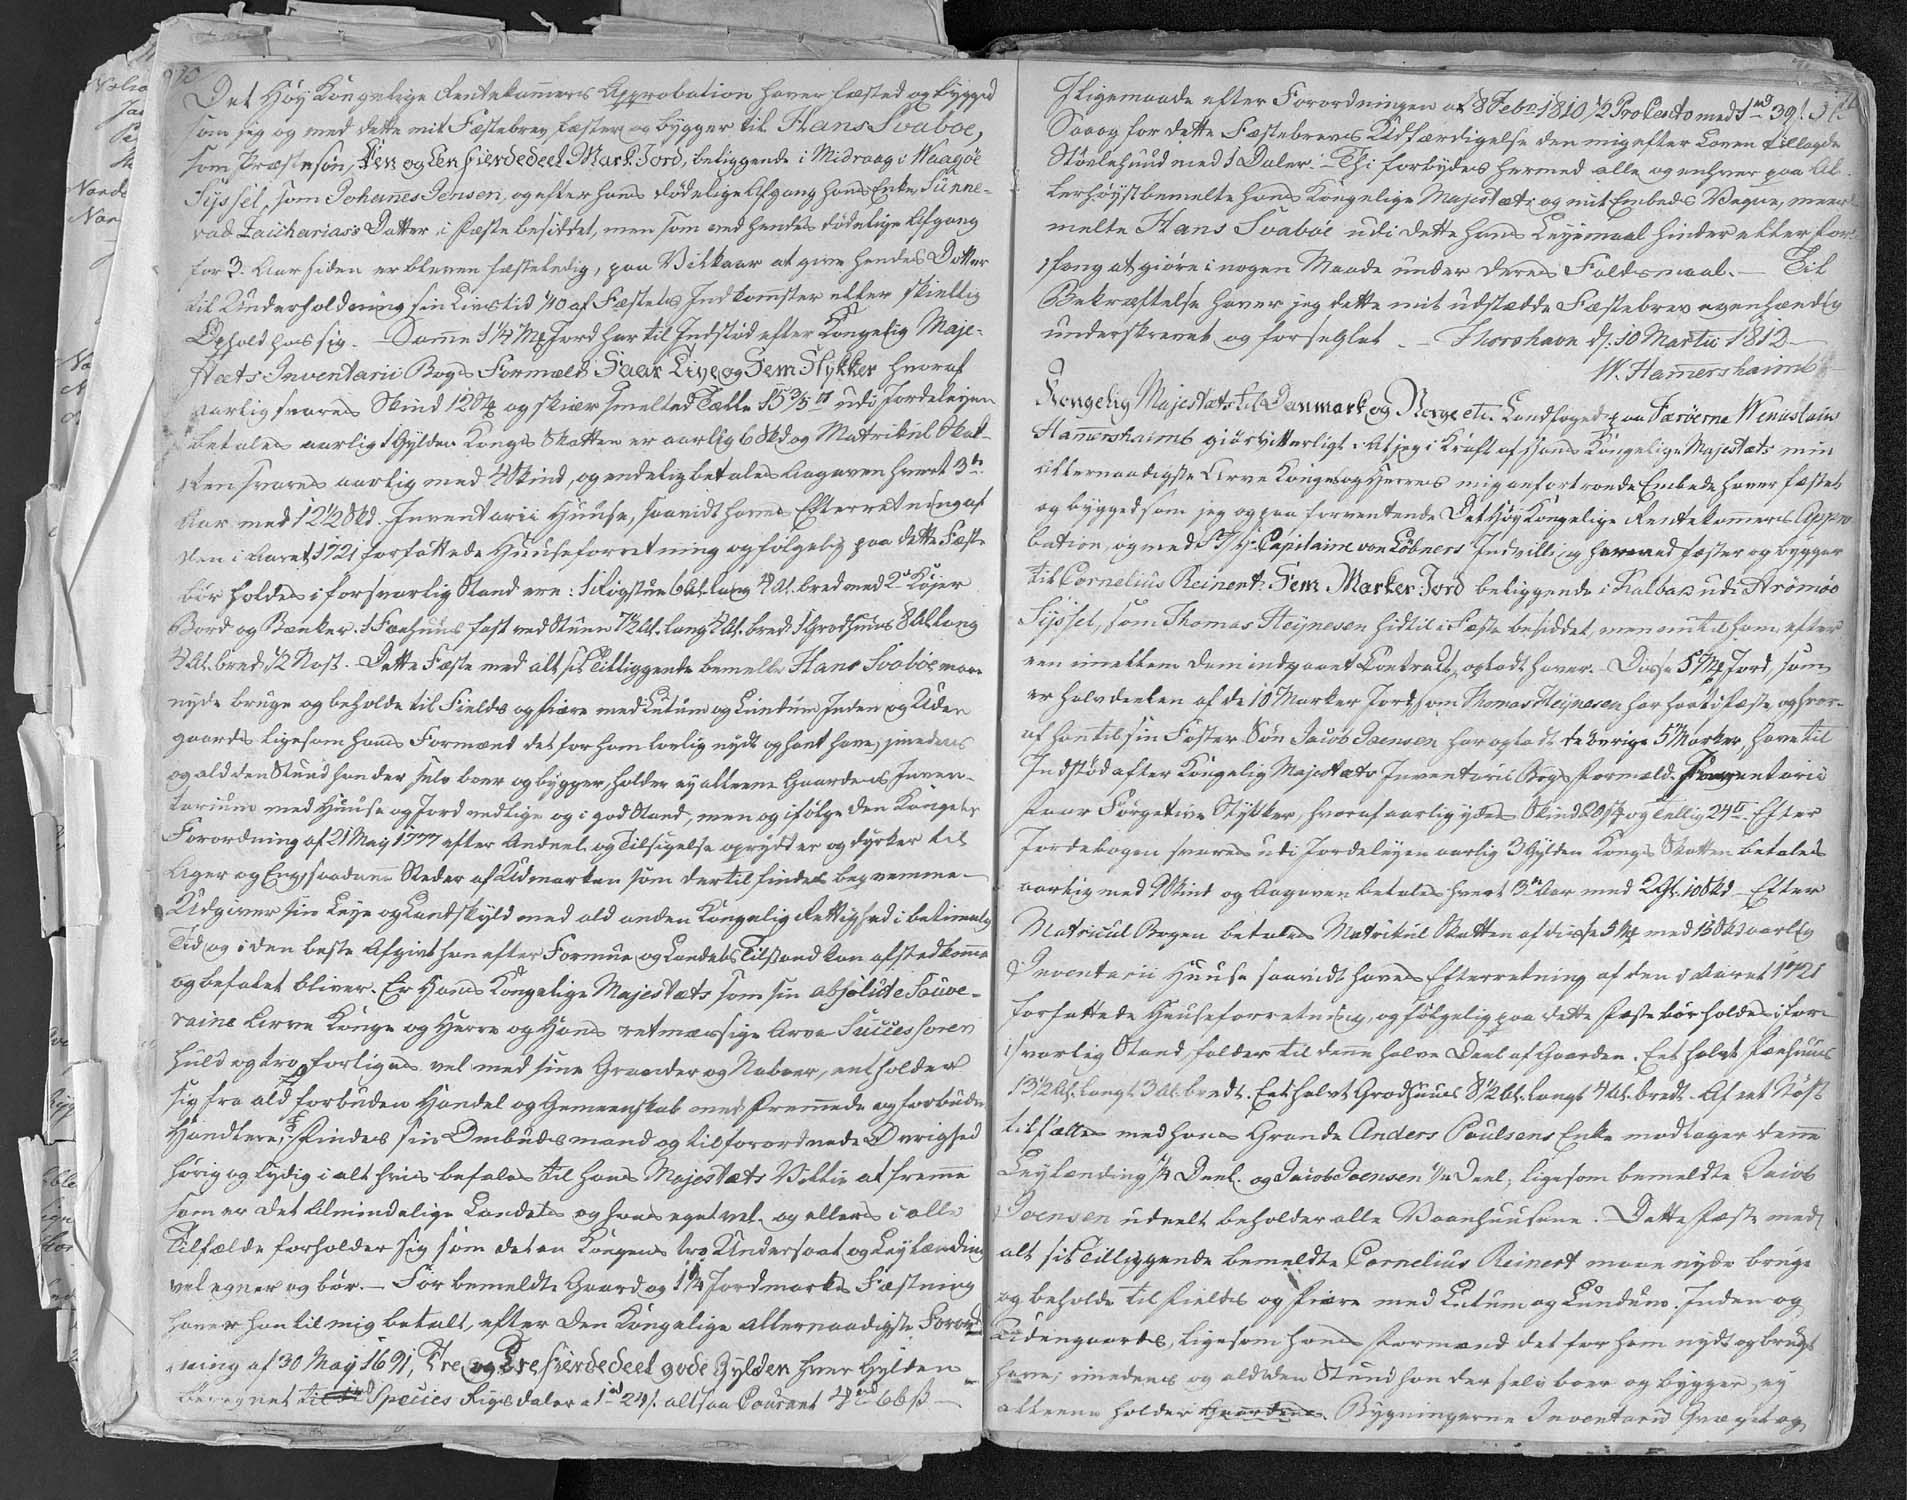 Det Høy Kongelige Rentekamers Approbation haver fæsted og bygged
som jeg og med dette mit Fæstebrev fæster og bygger til Hans Svaboe,
som Præstesøn, Een og Een Fierdedeel Mark Jord, beliggende i Midvaag i Waagöe
Syssel, som Johannes Jensen, og efter hans dødelige Afgang hans Enke Sunne-
va Zacharias's Datter i Fæste besiddet, men som ved hendes dødelige Afgang
for 3. Aar siden er bleven fæsteledig, paa Vilkaar at give hendes Datter
til Underholdning sin Livs tid 1/10 af Fæstets Indkomster eller skiellig
Ophold hos sig. – Samme 1 1/4 Mk Jord har til Indstød efter Kongelig Maje-
stæts Inventarii Bogs Formæld Faar Live og Fem Stykker hvoraf
aarlig svares Skind 120 og skiær smelted Tælle 15 3/5 udi Jordeleyen
betales aarlig 1 Gylden Kongs Skatten er aarlig 6 Skd og Matrikul Skat-
ten svares aarlig med 4 Skind, og endelig betales Aagaven hvert 3de
Aar med 12 1/2 Skd. Inventarii Huuse, saavidt haves Efterretning af
den i Aaret 1721 forfattede Huuseforretning og følgelig paa dette Fæste
bør holdes i forsvarlig Stand ere: 1 Røgstue 6 Al. lang 4 Al. bred med 2de Køjer
Bord og Bænker. 1 Faehuus fast ved Stuen 7 1/2 Al. lang 4 Al. bred. 1 Grodhuus 8 Al. lang
4 Al. bred. 1/2 Nøst. Dette Fæste med alt sit Tilliggende bemelte Hans Svaboe maae
nyde bruge og beholde til Fields og Fiære med Lutum og Lundum Inden og Uden
gaards ligesom hans Formænd det for ham lovlig nydt og havt have, imedens
og ald den Stund han der selv boer og bygger, holder ey alleene Gaardens Inven-
tarium med Huuse og Jord vedlige og i god Stand, men og ifølge den Kongelige
Forordning af 21 May 1777 efter Andeel og Tilsigelse oprydder og dyrker til
Ager og Eng, saadanne Steder af Udmarken som dertil findes beqvemme –
Udgiver sin Leye og Landskyld med ald anden Kongelig Rettighed i betimelig
Tid og i den beste Afgivt han efter Formue og Landets Tilstand kan afstedkomme
og befalet bliver. Er Hans Kongelige Majestæts som sin absolute Souve-
raine Arve Konge og Herre og Hans retmæssige Arve Successorer
huld og troe, forliges vel med sine Grander og Naboer, entholder
sig fra ald forbuden Handel og Gemeenskab med fremmede og forbudne
Handlere, findes sin Ombudsmand og tilforordnede Øvrighed
hørig og lydig i alt hvis befales til hans Majestæts Villie at fremme
som er det Almindelige Landets og hans eget vel og ellers i alle
Tilfælde forholder sig som det en Kongens tro Undersaat og Leylænding
vel egner og bør. – For bemeldte Gaard og 1 1/4 Jordmarks Fæstning
haver han til mig betalt, efter den Kongelige allernaadigste Forord-
ning af 30 May 1691, Tre og Tre Fierdedeel gode Gylden hver Gylden
beregnet til Species Rigsdaler a 1 rd 24 s. altsaa Courant 4 rd 66 s –
Iligemaade efter Forordningen af 8 Febr. 1810 1/2 Pro Cento med 1 rd 39 s.
Saa og for dette Fæstebrevs Udfærdigelse den mig efter Loven tillagde
Støvlehuud med 1 Daler. – Thi forbydes hermed alle og enhver paa Al-
lerhøystbemelte hans Kongelige Majestæts og mit Embeds Vegne, meer-
melte Hans Svaboe udi dette hans Leyemaal hinder eller for-
fang at giøre i nogen Maade under deres Faldsmaal. – Til
Bekræftelse haver jeg dette mit udstædde Fæstebrev egenhændig
underskrevet og forseglet – Thorshavn d. 10 Martii 1812 –
W. Hamershaimb
Kongelig Majestæts til Danmark og Norge etc. Landfoged paa Færøerne Wenuslaus
Hamershaimb giør vitterligt: At jeg i Kraft af Hans Kongelige Majestæts min
allernaadigste Arve Konges og Herres mig anfortroede Embede haver fæsted
og bygged som jeg og paa forventende Det Høy Kongelige Rentekamers Appro
bation, og med Hr. Capitaine von Löbners Indvillig hermed fæster og bygger
til Cornelius Reinert Fem Marker Jord beliggende i Kalbak udi Strömöe
Syssel, som Thomas Heynesen hidtil i Fæste besiddet, men nu til ham efter
een imellem dem indgaaet Contract opladt haver. – Disse 5 Mk Jord, som
er halvdeelen af de 10 Marker Jord, som Thomas Heynesen har havt i Fæste, og hvor-
af han til sin Foster Søn Jacob Joensen har opladt de øvrige 5 Marker, have til
Indstød efter Kongelig Majestæts Inventarii Bogs Formæld. Inventarii
Faar Førgetive Stykker, hvoraf aarlig ydes Skind 20 og Tællig 24. Efter
Jordebogen svares udi Jordeleyen aarlig 3 Gylden Kongs Skatten betales
aarlig med 9 Skind og Aagaven betales hvert 3de Aar med 2 Gl. 10 Skd – Efter
Matricul Bogen betales Matrikul Skatten af disse 5 Mk med 13 Skd aarlig
Inventarii Huuse saavidt haves Efterretning af den i Aaret 1721
forfattede Huuseforretning, og følgelig paa dette Fæste bør holdes i for-
svarlig Stand, falder til denne halve Deel af Gaarden. Eet halvt Faehuus
13 1/2 Al. langt 3 Al. bredt. Eet halvt Grodhuus 8 1/2 Al. langt 4 Al. bredt. Af eet Nøst
til fælles med hans Grande Anders Poulsens Enke modtager denne
Leylænding 1/4 Deel. og Jacob Joensen 1/4 Deel, ligesom bemeldte Jacob
Joensen udeelt beholder alle Vaanhuusene. – Dette Fæste med
alt sit Tilliggende bemeldte Cornelius Reinert maae nyde bruge
og beholde til Fields og Fiære med Lutum og Lundum. Inden og
Udengaards, ligesom hans Formænd det for ham nydt og brugt
have, imedens og ald den Stund han der selv boer og bygger, ey
alleene holder Gaardens Bygningerne Inventarii Qvæget og